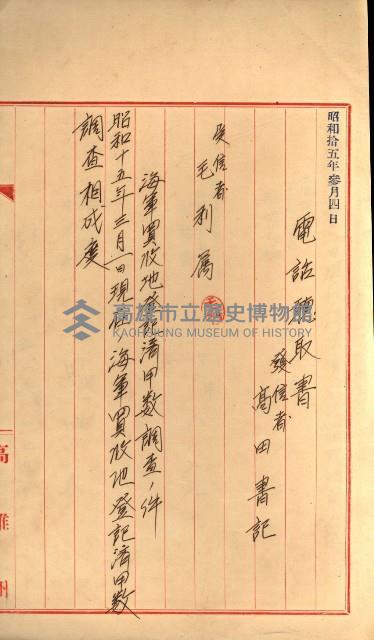 昭和拾五年參月四日
電話聽取書
發信者 高田書記
受信者 毛利属
海軍買收地登記濟甲数調查ノ件
昭和十五年三月一日現在海軍買收地登記濟甲数
調查相成度
高雄州
高雄市立歷史博物館
KAOHSIUNG MUSEUM OF HISTORY